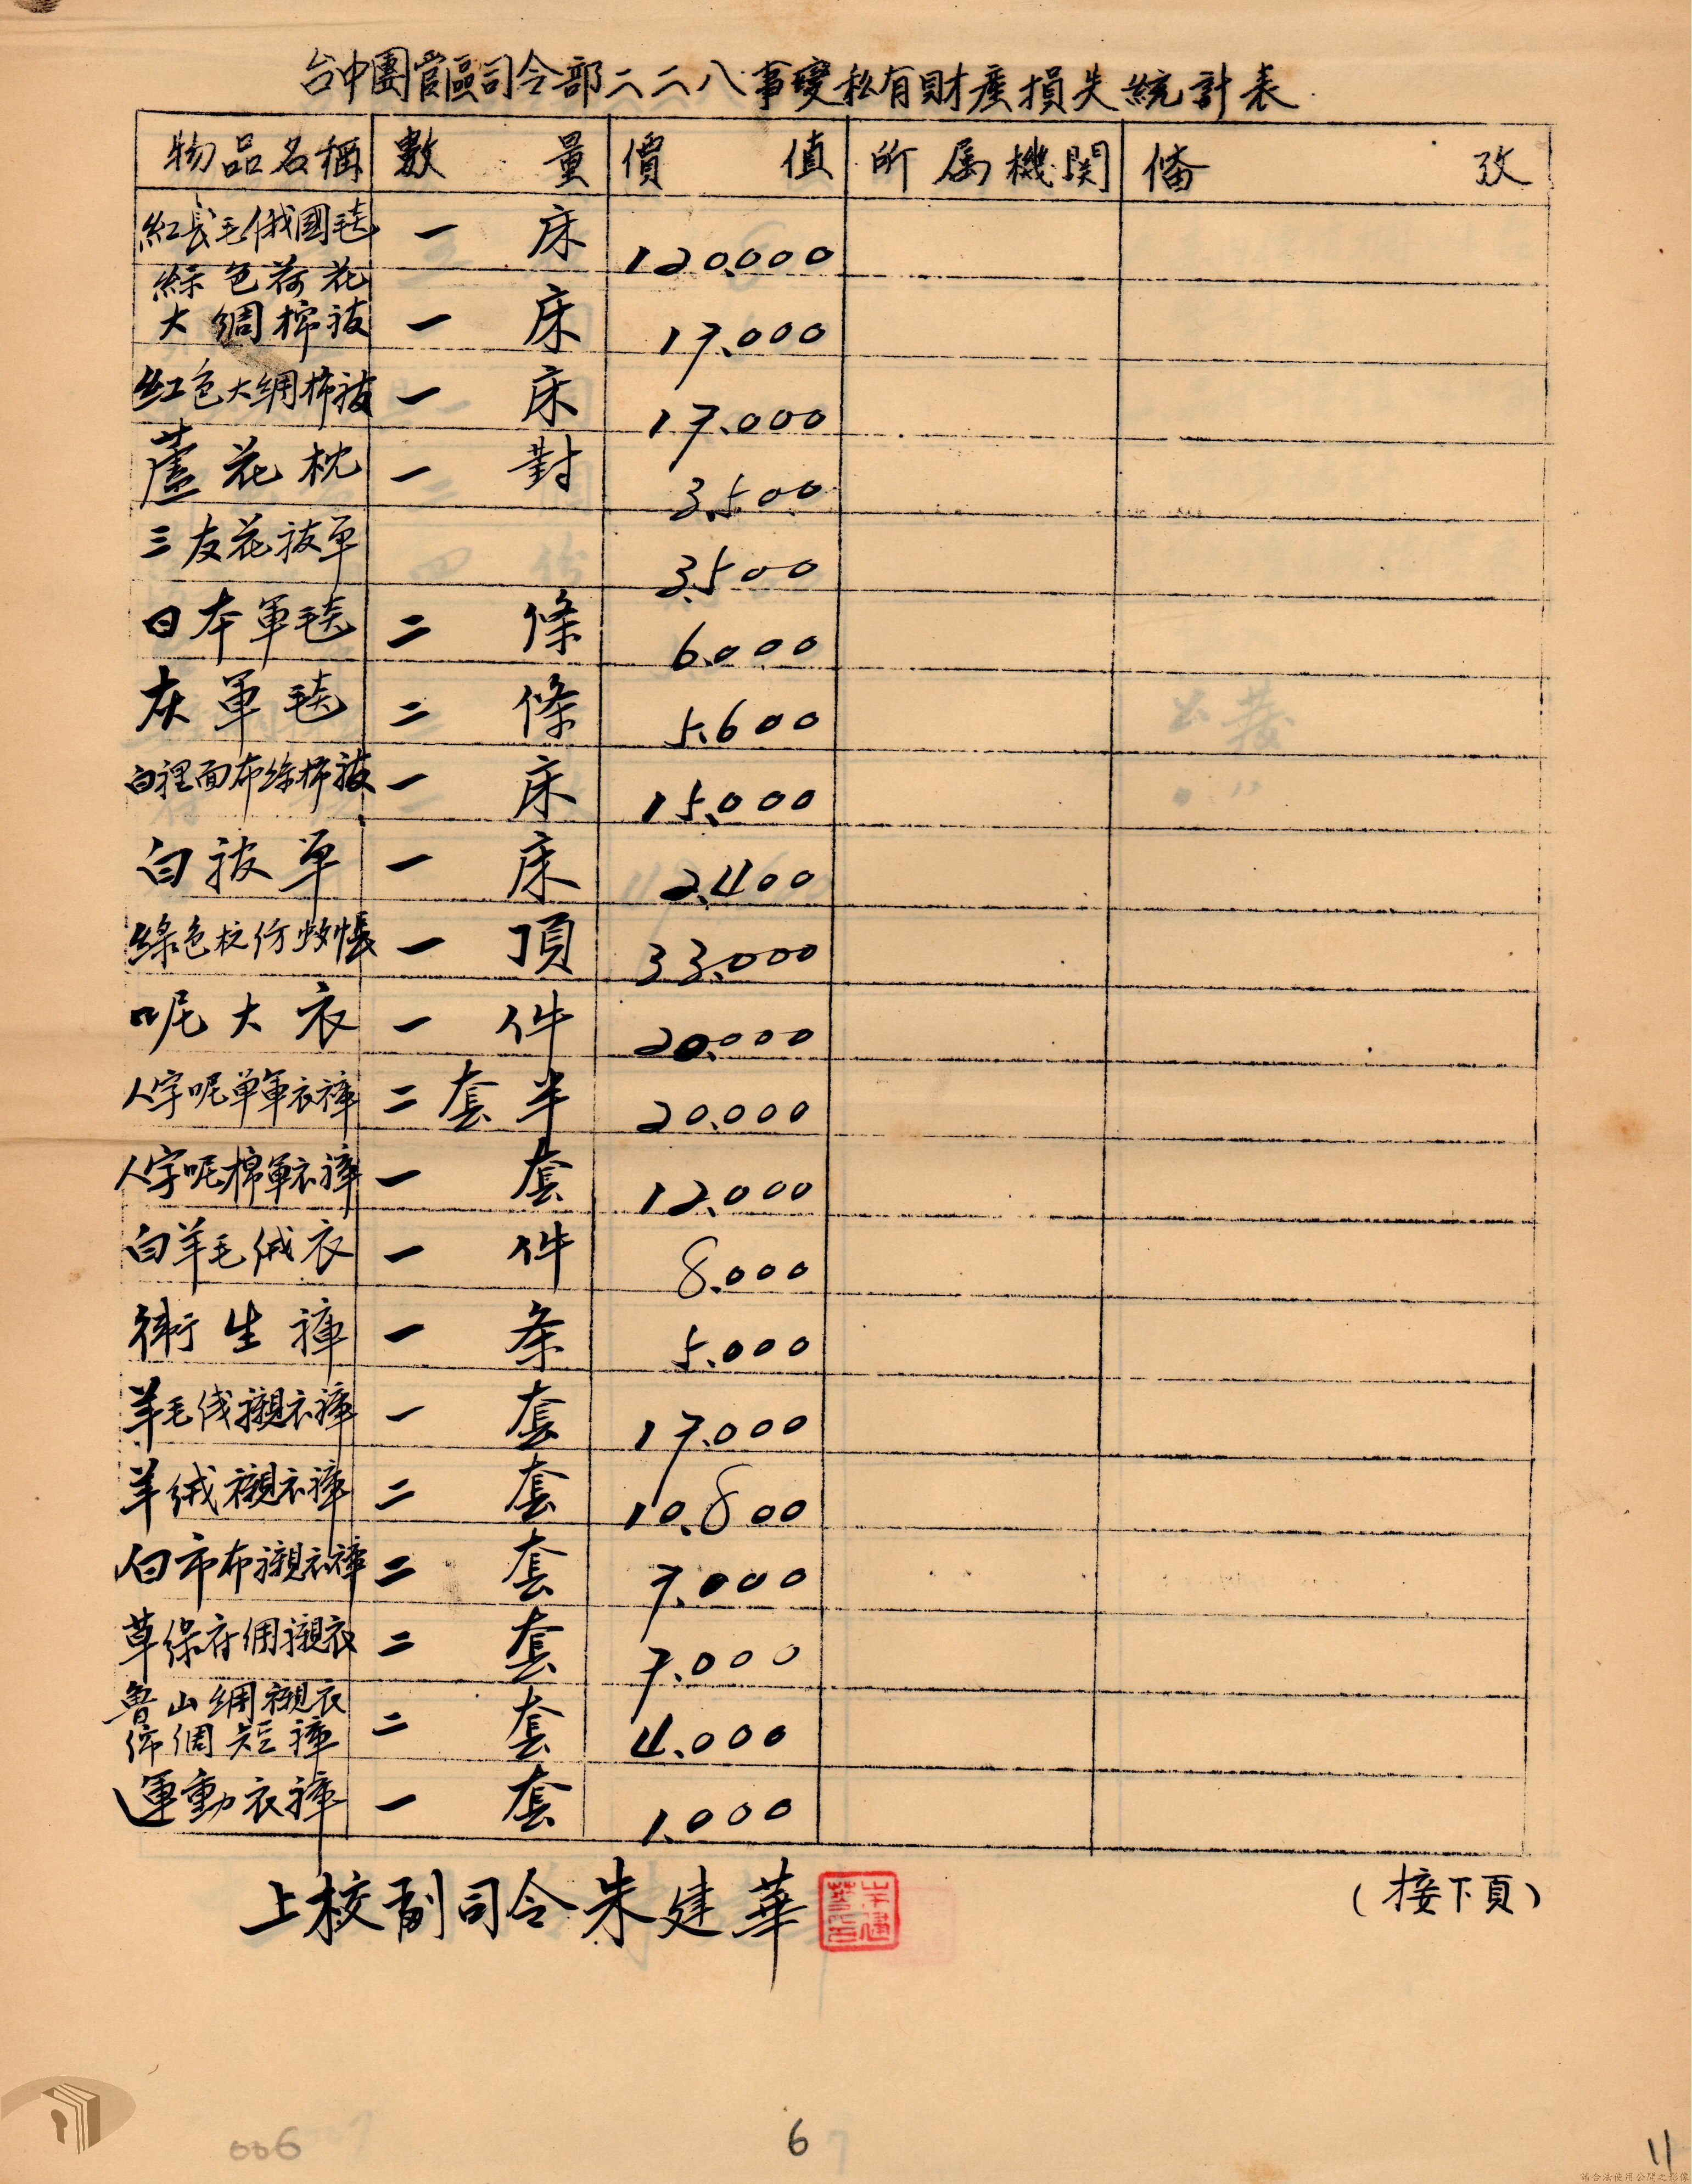 台中團管區司令部二二八事變私有財產損失統計表
物品名稱 數量 價值 所属機関 俻攷
紅長毛俄國毯 一床 120.000
綠色荷花
大綢棉被 一床 17.000
紅色大綢棉被 一床 17.000
蘆花枕 一對 3.500
三友花被单 3.500
日本軍毯 二條 6.000
灰軍毯 二條 5.600
白裡面布綠棉被 一床 15.000
白被单 一床 2.400
綠色 仿蚊帳 一頂 33.000
呢大衣 一件 20.000
人字呢单軍衣褲 二套半 20.000
人字呢棉軍衣褲 一套 12.000
白羊毛絨衣 一件 8.000
衛生褲 一条 5.000
羊毛絨襯衣褲 一套 17.000
羊絨襯衣褲 二套 10.800
白市布襯衣褲 二套 7.000
草綠府綢襯衣 二套 7.000
魯山綢襯衣
綢短褲 二套 4.000
運動衣褲 一套 1.000
上校副司令朱建華
(接下頁)
006
6
11
請合法使用公開之影像